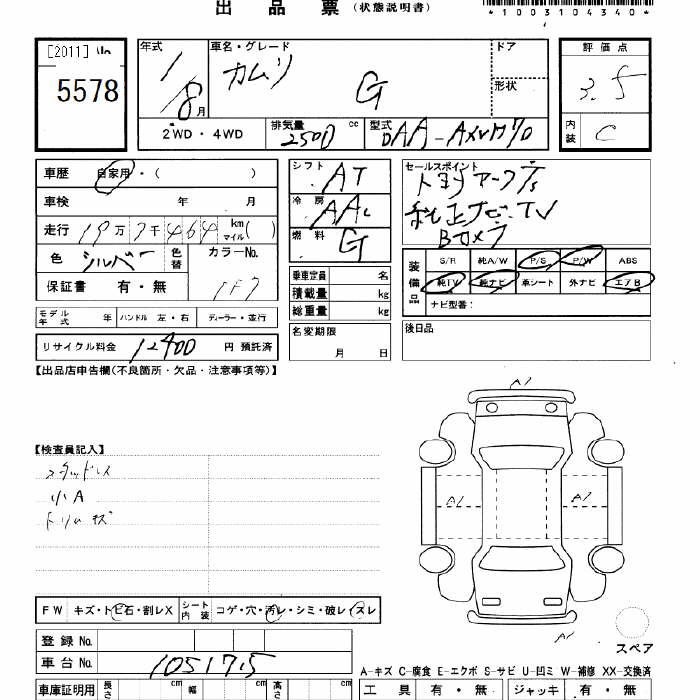 出 品 票 (状態説明書)
*1003104340*
[2011]
5578
年式 車名・グレード ドア 評価点
1/8月 カムリ G 形状 3.5
2WD・4WD 排気量 2500 cc 型式 DAA-AXVH70 内装 C
車歴 自家用・( )
車検 年 月
走行 19万7千464 km マイル( )
色 シルバー 色替 カラーNo.
保証書 有・無 1F7
モデル年式 年 ハンドル 左・右 ディーラー・並行
リサイクル料金 12400 円 預託済
シフト AT
冷房 AAC
燃料 G
乗車定員 名
積載量 kg
総重量 kg
名変期限
月 日
セールスポイント
純正ナビ・TV
Bカメラ
装備品 S/R 純A/W P/S P/W ABS
純TV 純ナビ 革シート 外ナビ エアB
ナビ型番:
後日品
【出品店申告欄(不良箇所・欠品・注意事項等)】
【検査員記入】
スタッドレス
小A
トリムキズ
A1
A1 A1
A1
スペア
FW キズ・トビ石・割レX シート内装 コゲ・穴・汚レ・シミ・破レ・スレ
登録No.
車台No. 1051715
A-キズ C-腐食 E-エクボ S-サビ U-凹ミ W-補修 XX-交換済
車庫証明用 長さ cm 幅 cm 高さ cm 工具 有・無 ジャッキ 有・無